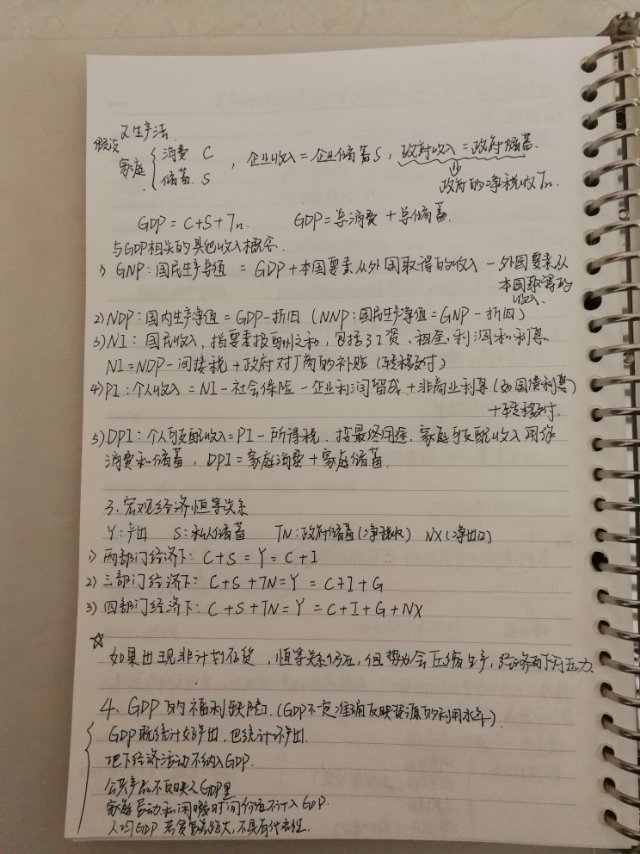 又生产法.
假设 家庭 { 消费 C , 企业收入=企业储蓄S, 政府收入=政府储蓄.
储蓄. S ⇓ 政府的净税收Tn.
GDP = C+S+Tn. GDP=总消费+总储蓄.
与GDP相关的其他收入概念.
1) GNP:国民生产总值 = GDP+本国要素从外国取得的收入 - 外国要素从
本国取得的
收入.
2) NDP:国内生产净值=GDP-折旧 (NNP:国民生产净值=GNP-折旧)
3) NI:国民收入,指要素报酬之和,包括了工资、租金、利润和利息
NI=NDP-间接税+政府对厂商的补贴(转移支付)
4) PI:个人收入=NI-社会保险-企业利润留成+非商业利息(如国债利息)
+转移支付.
5) DPI:个人可支配收入=PI-所得税. 按最终用途,家庭可支配收入用作
消费和储蓄, DPI=家庭消费+家庭储蓄.
3.宏观经济恒等关系
Y:产出 S:私人储蓄 TN:政府储蓄(净税收) NX(净出口)
1) 两部门经济下: C+S=Y=C+I
2) 三部门经济下: C+S+TN=Y=C+I+G
3) 四部门经济下: C+S+TN=Y=C+I+G+NX
☆ 如果出现非计划存货,恒等关系仍在,但势必会压缩生产,经济有下行压力.
4、GDP的福利缺陷.(GDP不一定准确反映资源的利用水平)
GDP既统计好产出,也统计坏产出.
地下经济活动不纳入GDP.
公共产品不反映入GDP里
家庭劳动和闲暇时间价值不计入GDP.
人均GDP 若贫富差距大,不具有代表性.